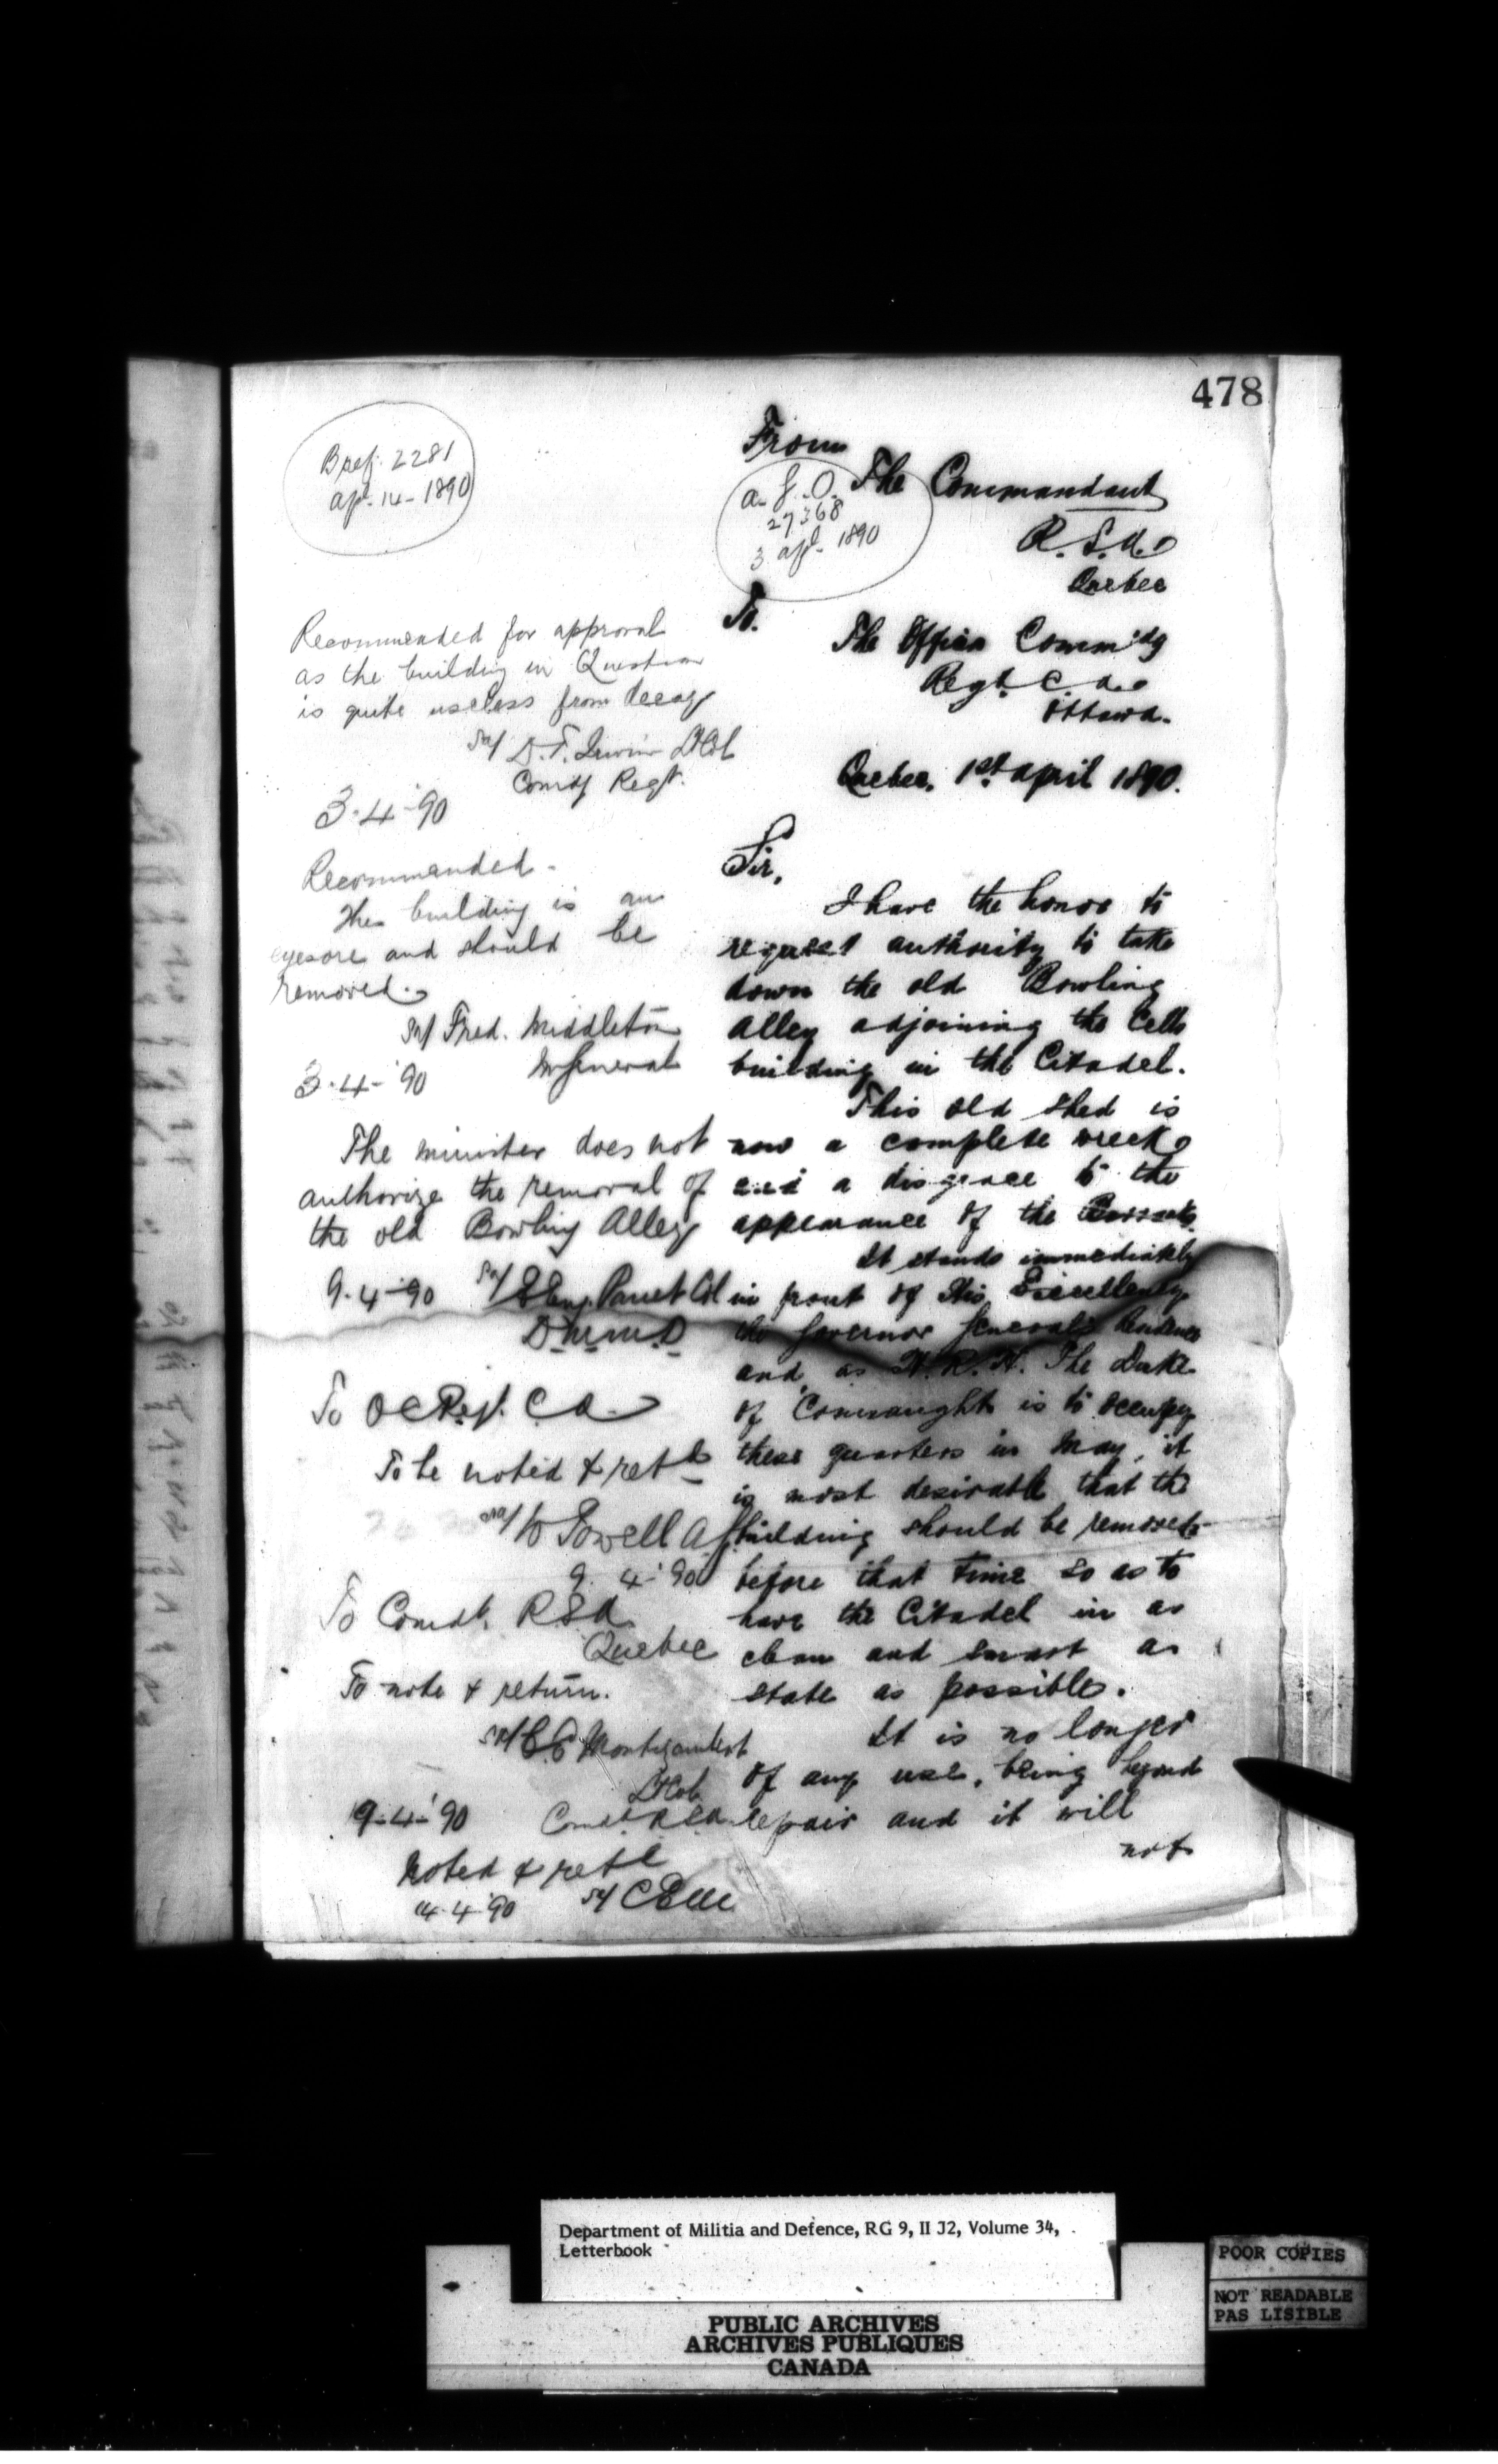 478
B ref. 2281
Apl. 14 - 1890
From
The Commandant
R.S.A.
Quebec
A.G.O.
27368
3 apl. 1890
To.
The Officer Comm'dg
Regt. C.A.
Ottawa.
Quebec, 1st April 1890.
Sir,
I have the honor to
request authority to take
down the old Bowling
Alley adjoining the Cells
building in the Citadel.
This old shed is
now a complete wreck
and a disgrace to the
appearance of the
It stands immediately
in front of His Excellency
the Governor General's Residence
and, as H.R.H. The Duke
of Connaught is to occupy
these quarters in May, it
is most desirable that the
building should be removed
before that time so as to
have the Citadel in as
clean and smart a
state as possible.
It is no longer
of any use, being beyond
repair and it will
not
Recommended for approval
as the building in Question
is quite useless from decay
Sd/ D.T. Irwin Lt Col
Comdg Regt.
3-4-'90
Recommended -
The building is an
eyesore and should be
removed.
Sd/ Fred. Middleton
M General
3-4-'90
The minister does not
authorize the removal of
the old Bowling Alley
9-4-'90 Sd/ Panet Col
D.M.M.D
To OC Regt. C A
To be noted & retd
Sd/ W Powell AG
9.4-'90
To Comdt. RSA
Quebec
To note & return.
Sd/ C E Montizambert
Lt Col.
9-4-'90 Comdt RSA
Noted & retd
14.4.90 Sd/
Department of Militia and Defence, RG 9, II J2, Volume 34,
Letterbook
POOR COPIES
NOT READABLE
PAS LISIBLE
PUBLIC ARCHIVES
ARCHIVES PUBLIQUES
CANADA